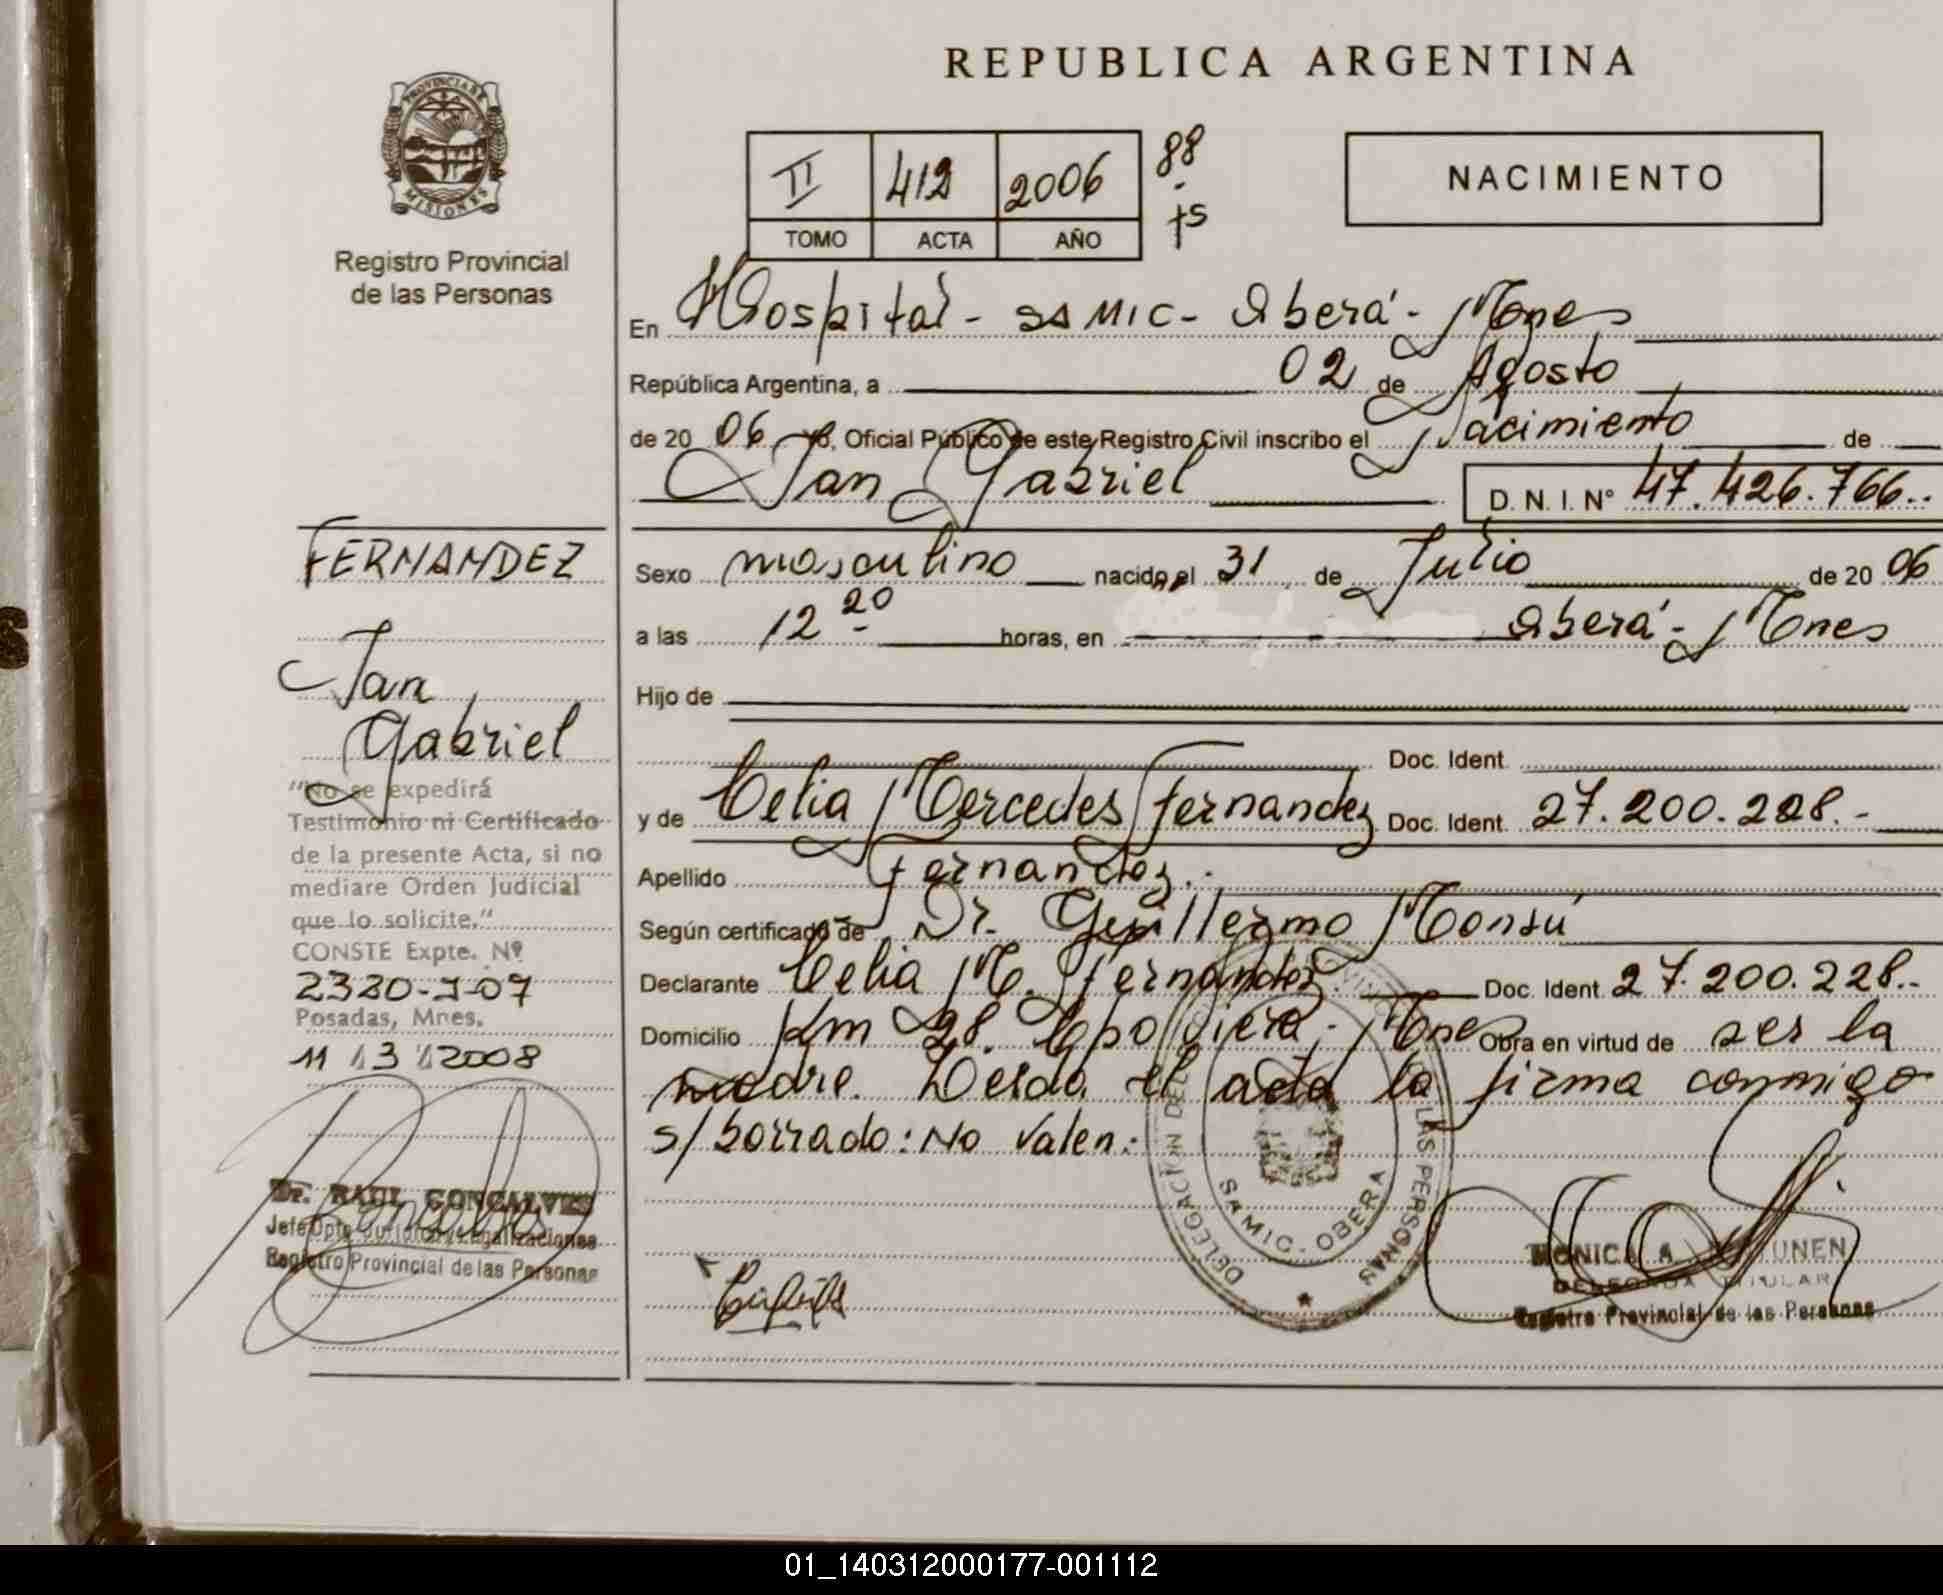 REPUBLICA ARGENTINA
PROVINCIA DE
MISIONES
Registro Provincial
de las Personas
II 412 2006 88
TOMO ACTA AÑO
NACIMIENTO
En Hospital - SAMIC - Oberá - Mnes
República Argentina, a 02 de Agosto
de 20 06 Yo, Oficial Público de este Registro Civil inscribo el Nacimiento de
Ian Gabriel D. N. I. N° 47.426.766..
FERNANDEZ
Ian
Gabriel
Sexo masculino nacido el 31 de Julio de 20 06
a las 12 20 horas, en Oberá - Mnes
Hijo de
Doc. Ident.
y de Celia Mercedes Fernandez Doc. Ident. 27.200.228.-
Apellido Fernandez.-
Según certificado de Dr. Guillermo Monsú
Declarante Celia M. Fernandez. Doc. Ident. 27.200.228..
Domicilio Km 28. Cpo Viera - Mnes Obra en virtud de ser la
madre. Leida el acta la firma conmigo
s/borrado: No Valen:
"No se expedirá
Testimonio ni Certificado
de la presente Acta, si no
mediare Orden Judicial
que lo solicite."
CONSTE Expte. Nº
2320-J-07
Posadas, Mnes.
11 / 3 / 2008
Dr. RAUL GONCALVES
Jefe Dpto Jurídico y Legalizaciones
Registro Provincial de las Personas
DELEGACIÓN DEL LAS PERSONAS
SAMIC - OBERA
MONICA A.
DELEGADA TITULAR
Registro Provincial de las Personas
01_140312000177-001112